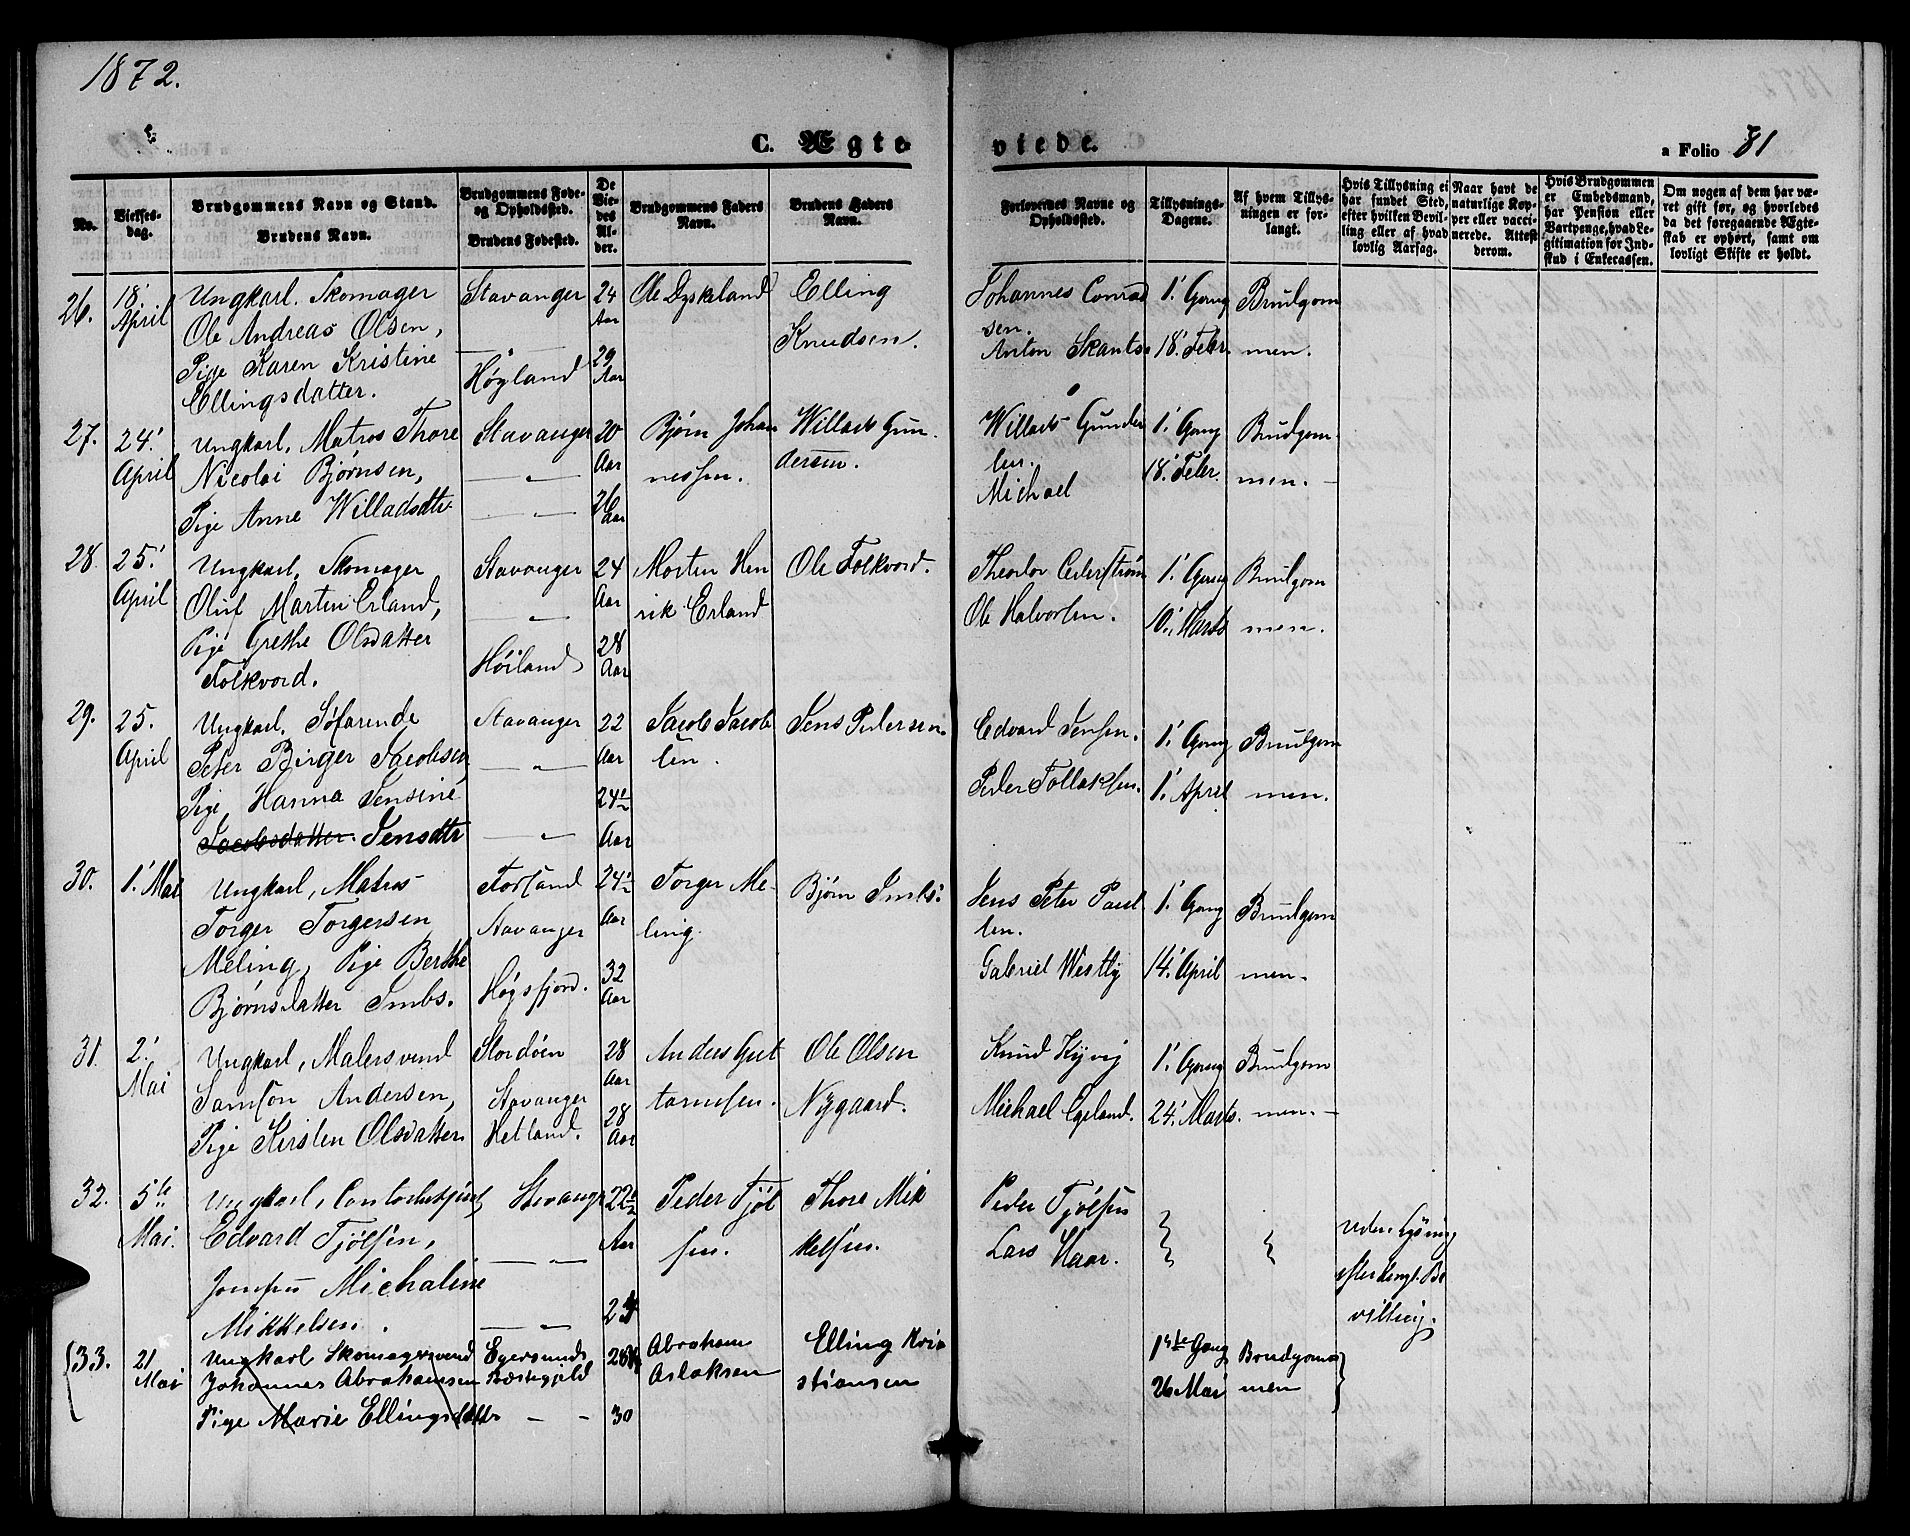 1872.
C. Ægte
viede.
a Folio 81
No.
Vielses-
dag.
Brudgommens Navn og Stand.
Brudens Navn.
Brudgommens Føde-
og Opholdssted.
Brudens Fødested.
De
Vie-
des
Al-
der.
Brudgommens Faders
Navn.
Brudens Faders
Navn.
Forlovernes Navne og
Opholdssted.
Tillysnings-
Dagene.
Af hvem Tillys-
ningen er for-
langt.
Hvis Tillysning ei
har fundet Sted,
efter hvilken Bevil-
ling eller af hvad
lovlig Aarsag.
Naar havt de
naturlige Kop-
per eller vacci-
nerede. Attest
derom.
Hvis Brudgommen
er Embedsmand,
har Pension eller
Vartpenge, hvad Le-
gitimation for Ind-
skud i Enkecassen.
Om nogen af dem har væ-
ret gift før, og hvorledes
da det foregaaende Ægte-
skab er ophørt, samt om
lovligt Skifte er holdt.
26.
18'
April
Ungkarl. Skomager
Ole Andreas Olsen,
Pige Karen Kristine
Ellingsdatter.
Stavanger
Høyland
24
Aar
29
Aar
Ole Dyskeland
Elling
Knudsen.
Johannes Conrad
sen.
Anton Skants
1' Gang
18' Febr.
Brudgom
men.
27.
24'
April
Ungkarl. Matros Thore
Nicolai Bjørnsen,
Pige Anne Willadsdtr.
Stavanger
— " —
— " —
20
Aar
26
Aar
Bjørn Johan
nessen.
Willads Gun
dersen.
Willads Gunder
sen.
Michael
1' Gang
18' Febr.
Brudgom
men. -
28.
25'
April
Ungkarl, Skomager
Oluf Martin Erland,
Pige Grethe Olsdatter
Folkvord.
Stavanger
— " —
Høiland
24
Aar
28
Aar
Morten Hen
rik Erland
Ole Folkvord.
Theodor Cederstrøm
Ole Halvorsen.
1' Gang
10' Marts
Brudgom
men.
29.
25.
April
Ungkarl. Søfarende
Peter Birger Jacobsen
Pige Hanna Jensine
Jacobsdatter. Jensdtr
Stavanger
— " —
— " —
22
Aar
24½
Aar
Jacob Jacob
sen.
Jens Pedersen.
Edvard Jensen.
Peder Tollaksen.
1' Gang
1' April
Brudgom
men.
30.
1' Mai
Ungkarl, Matros
Torger Torgersen
Meling, Pige Berthe
Bjørnsdatter Imbs.
Forsand
Stavanger
Høgsfjord.
24½
Aar
32
Aar
Torger Me-
ling.
Bjørn Imbs.
Jens Peter Paul
sen.
Gabriel Westly
1' Gang
14' April
Brudgom
men.
31.
2'
Mai
Ungkarl, Malersvend
Samson Andersen,
Pige Kirsten Olsdatter.
Stordøen
Stavanger
Hetland.
28
Aar
28
Aar
Anders Gut
tormsen.
Ole Olsen
Nygaard.
Knud Kyvig
Michael Egeland.
1' Gang
24' Marts.
Brudgom
men. -
32.
5te
Mai.
Ungkarl,
Edvard Tjølsen,
Jomfru Michaline
Mikkelsen.
Stavanger
— " —
— " —
22½
Aar
Peder Tjøl
sen.
Thore Mik
kelsen.
Peder Tjølsen
Lars Haar.
uden Lysning
efter kongl. Be
villing.
33.
21
Mai
Ungkarl Skomagersvend
Johannes Abrahamsen
Pige Marie Ellingsdatter
Egersunds
Præstegjeld
— " —
30
Abraham
Aslaksen
Elling Kris
tiansen
1ste Gang
26 Mai
Brudgom
men